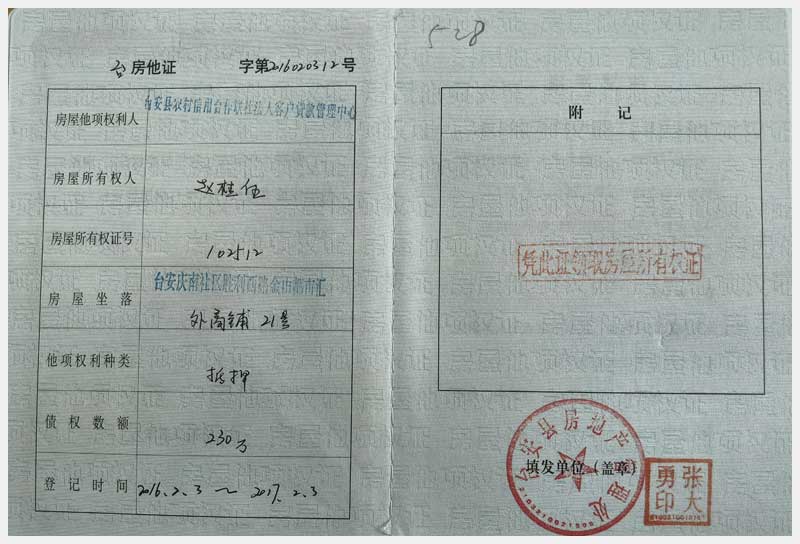 台 房他证 字第 201602031 2 号
房屋他项权利人 台安县农村信用合作联社法人客户贷款管理中心
房屋所有权人 赵桂伍
房屋所有权证号 102512
房屋坐落 台安庆南社区胜利西路金市
外商铺 21号
他项权利种类 抵押
债权数额 230万
登记时间 2016.2.3 ～ 2017.2.3
528
附 记
凭此证领取房屋所有权证
台安县房地产管理处
填发单位（盖章）
张大勇印